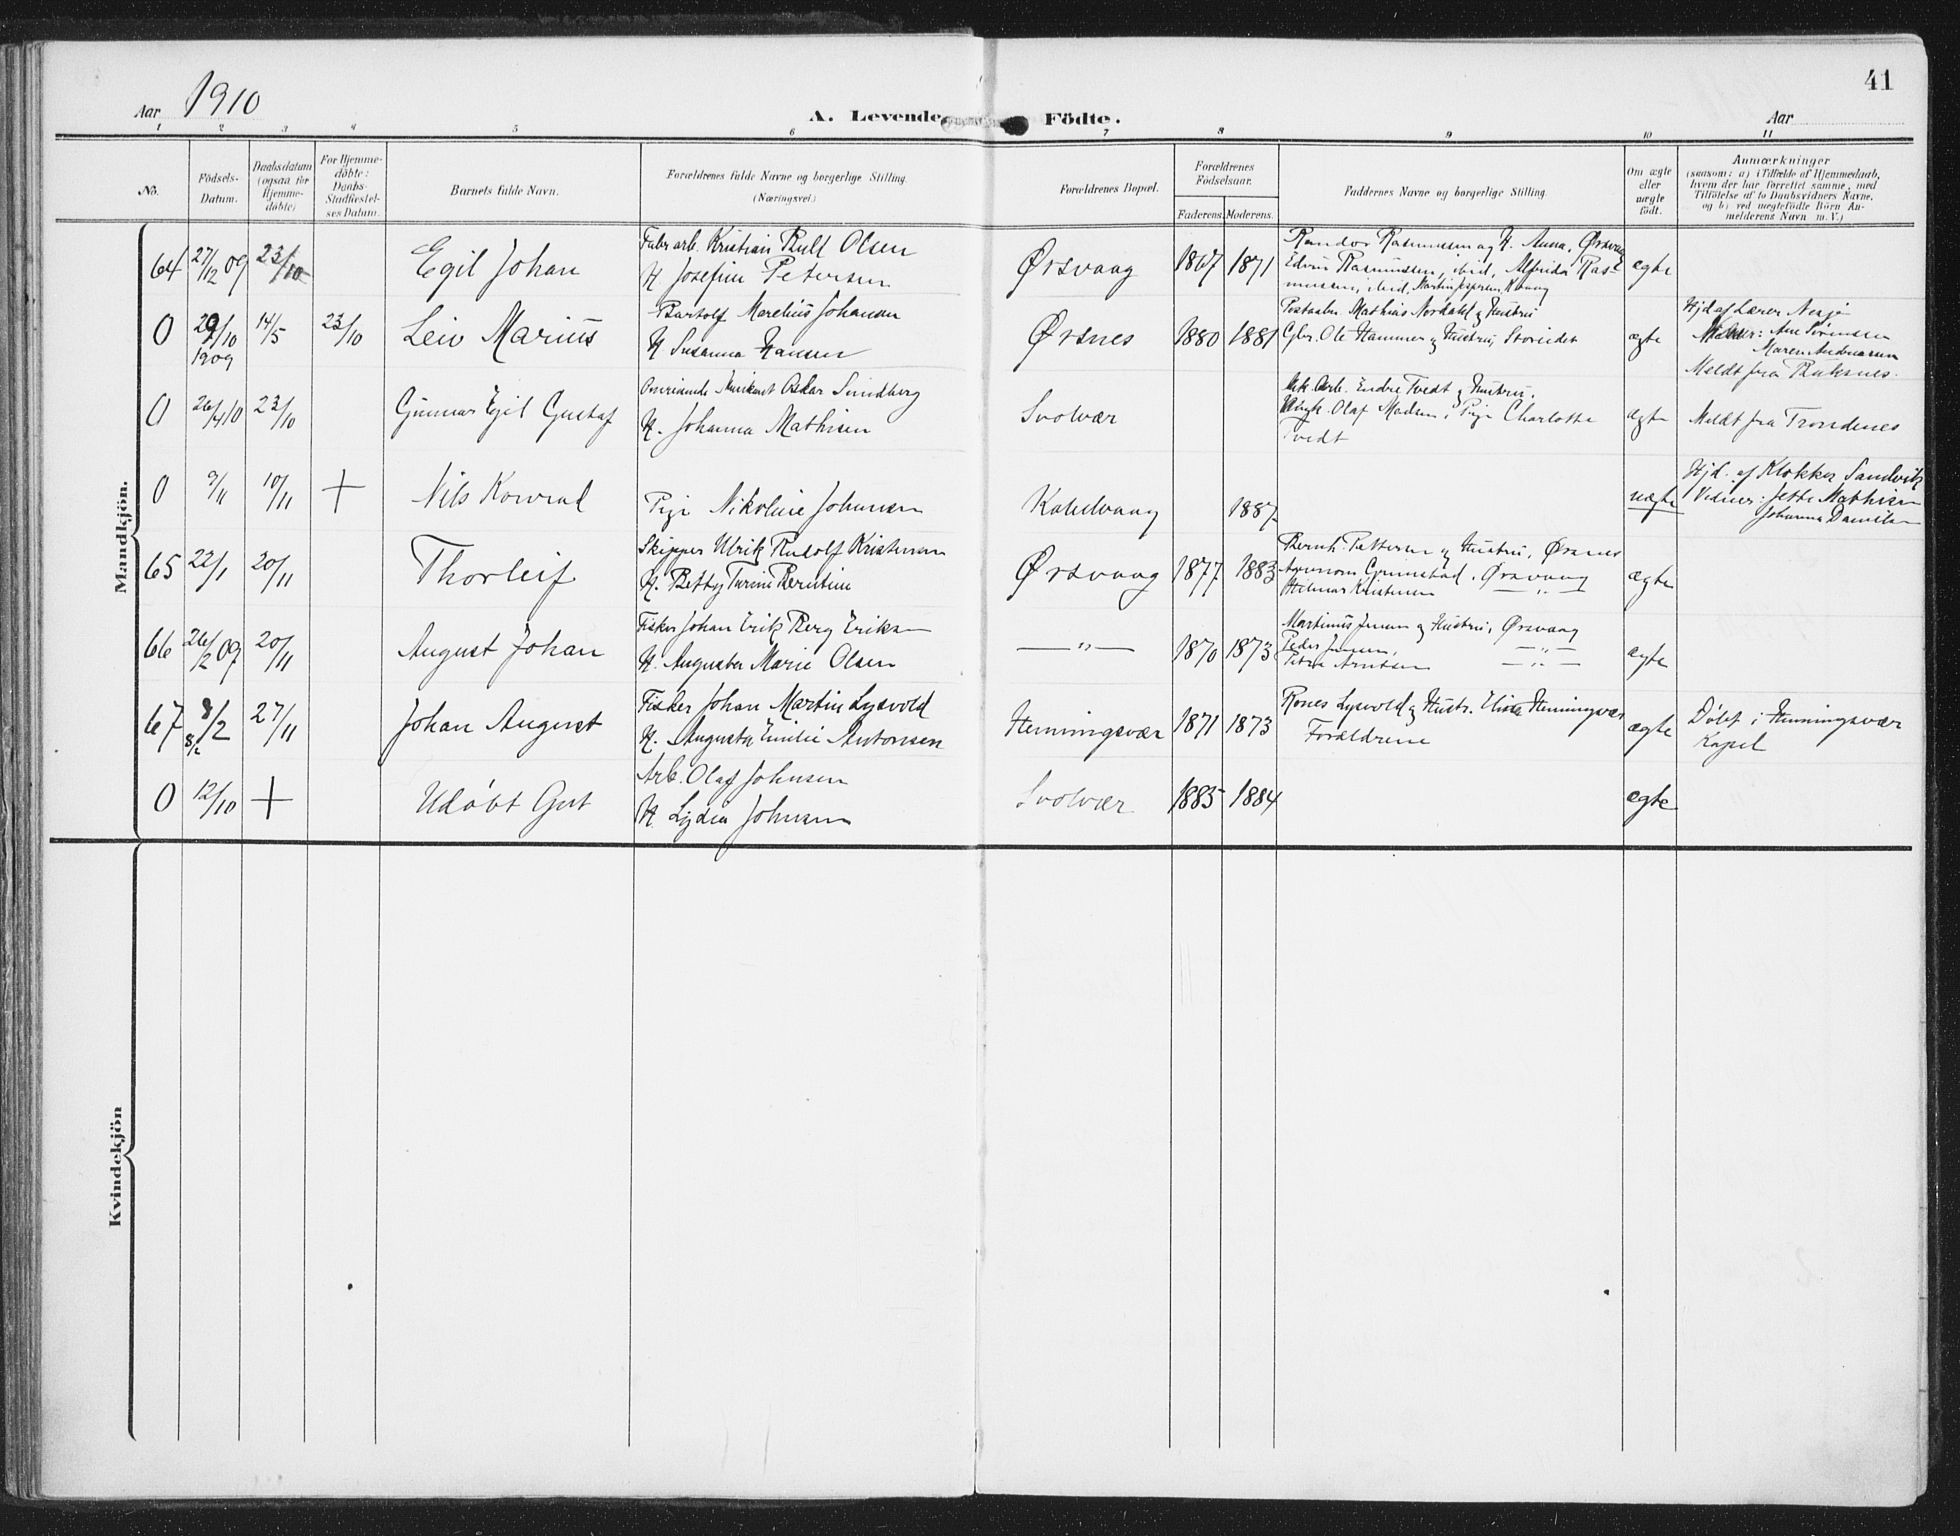 41
Aar 1910
A. Levende Födte.
Aar
1 2 3 4 5 6 7 8 9 10 11
No.
Födsels-
Datum.
Daabsdatum
(ogsaa for
Hjemme-
döbte)
For Hjemme-
döbte:
Daabs-
Stadfæstel-
ses Datum.
Barnets fulde Navn.
Forældrenes fulde Navne og borgerlige Stilling.
(Næringsvei.)
Forældrenes Bopæl.
Forældrenes
Födselsaar.
Faderens. Moderens.
Faddernes Navne og borgerlige Stilling.
Om ægte
eller
uægte
födt.
Anmærkninger
(saasom: a) i Tilfælde af Hjemmedaab,
hvem der har forrettet samme, med
Tilföielse af to Daabsvidners Navne,
og b) ved uægtefödte Börn An-
melderens Navn m. V.)
Mandkjön.
64 27/12 09 23/10 Egil Johan
Fabr.arb. Kristian Bull Olsen
H. Josefine Petersen
Ørsvaag 1867 1871
Randor Rasmussen og H. Anna, Ørsvaag
Edvin Rasmussen, ibid, Alfrida Ras-
mussen, ibid, Martin Jespersen
ægte
0 29/10 1909 14/5 23/10 Leiv Marius
Bartolf Marelius Johansen
H Susanna Hansen
Ørsnes 1880 1881
Mathias Norhald og Hustru
Gbr. Ole Hammer og Hustru,
ægte
Hjd af Lærer Nesje
Ane Sørensen
Maren Andreassen
Meldt fra Buksnes.
0 26/4 10 23/10 Gunnar Egil Gustaf
Omreisende Oskar Sundberg
H. Johanna Mathisen
Svolvær
Endre Tvedt og Hustru,
Olaf Madsen, Pige Charlotte
Tvedt
ægte
Meldt fra Trondenes
0 9/11 10/11 + Nils Konrad
Pige Nikoline Johansen
Kabelvaag 1887
uægte
Hjd. af Klokker Sandvik
Vidner: Jette Mathisen
Johanna Danielsen
65 22/1 20/11 Thorleif
Skipper Ulrik Rudolf Kristensen
H. Betty Turine Berntine
Ørsvaag 1877 1883
Bernh. Pettersen og Hustru, Ørsnes
Grimstad, Ørsvaag
Hilmar Kristensen — „ —
ægte
66 26/2 09 20/11 August Johan
Fisker Johan Erik Berg Eriksen
H. Augusta Marie Olsen
— „ — 1870 1873
Martinus Jensen og Hustru, Ørsvaag
Peder Jensen, — „ —
Petra Arntsen — „ —
ægte
67 8/2 8/2 27/11 Johan August
Fisker Johan Martin Lysvold
H. Augusta Emilie Antonsen
Henningsvær 1871 1873
Rones Lysvold og Hustr. Henningsvær
Forældrene
ægte
Døbt i Henningsvær
Kapel
0 12/10 + Udøbt Gut
Arb. Olaf Johnsen
H. Lydia Johnsen
Svolvær 1885 1884
ægte
Kvindekjön